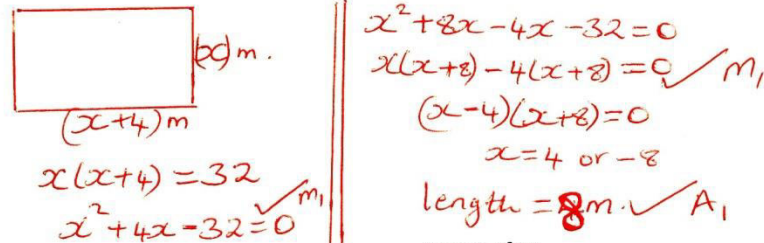 (x)m.
(x+4)m
x(x+4)=32
x²+4x-32=0 ✓ M₁
x²+8x-4x-32=0
x(x+8)-4(x+8)=0 ✓ M₁
(x-4)(x+8)=0
x=4 or -8
length = 8m. ✓ A₁